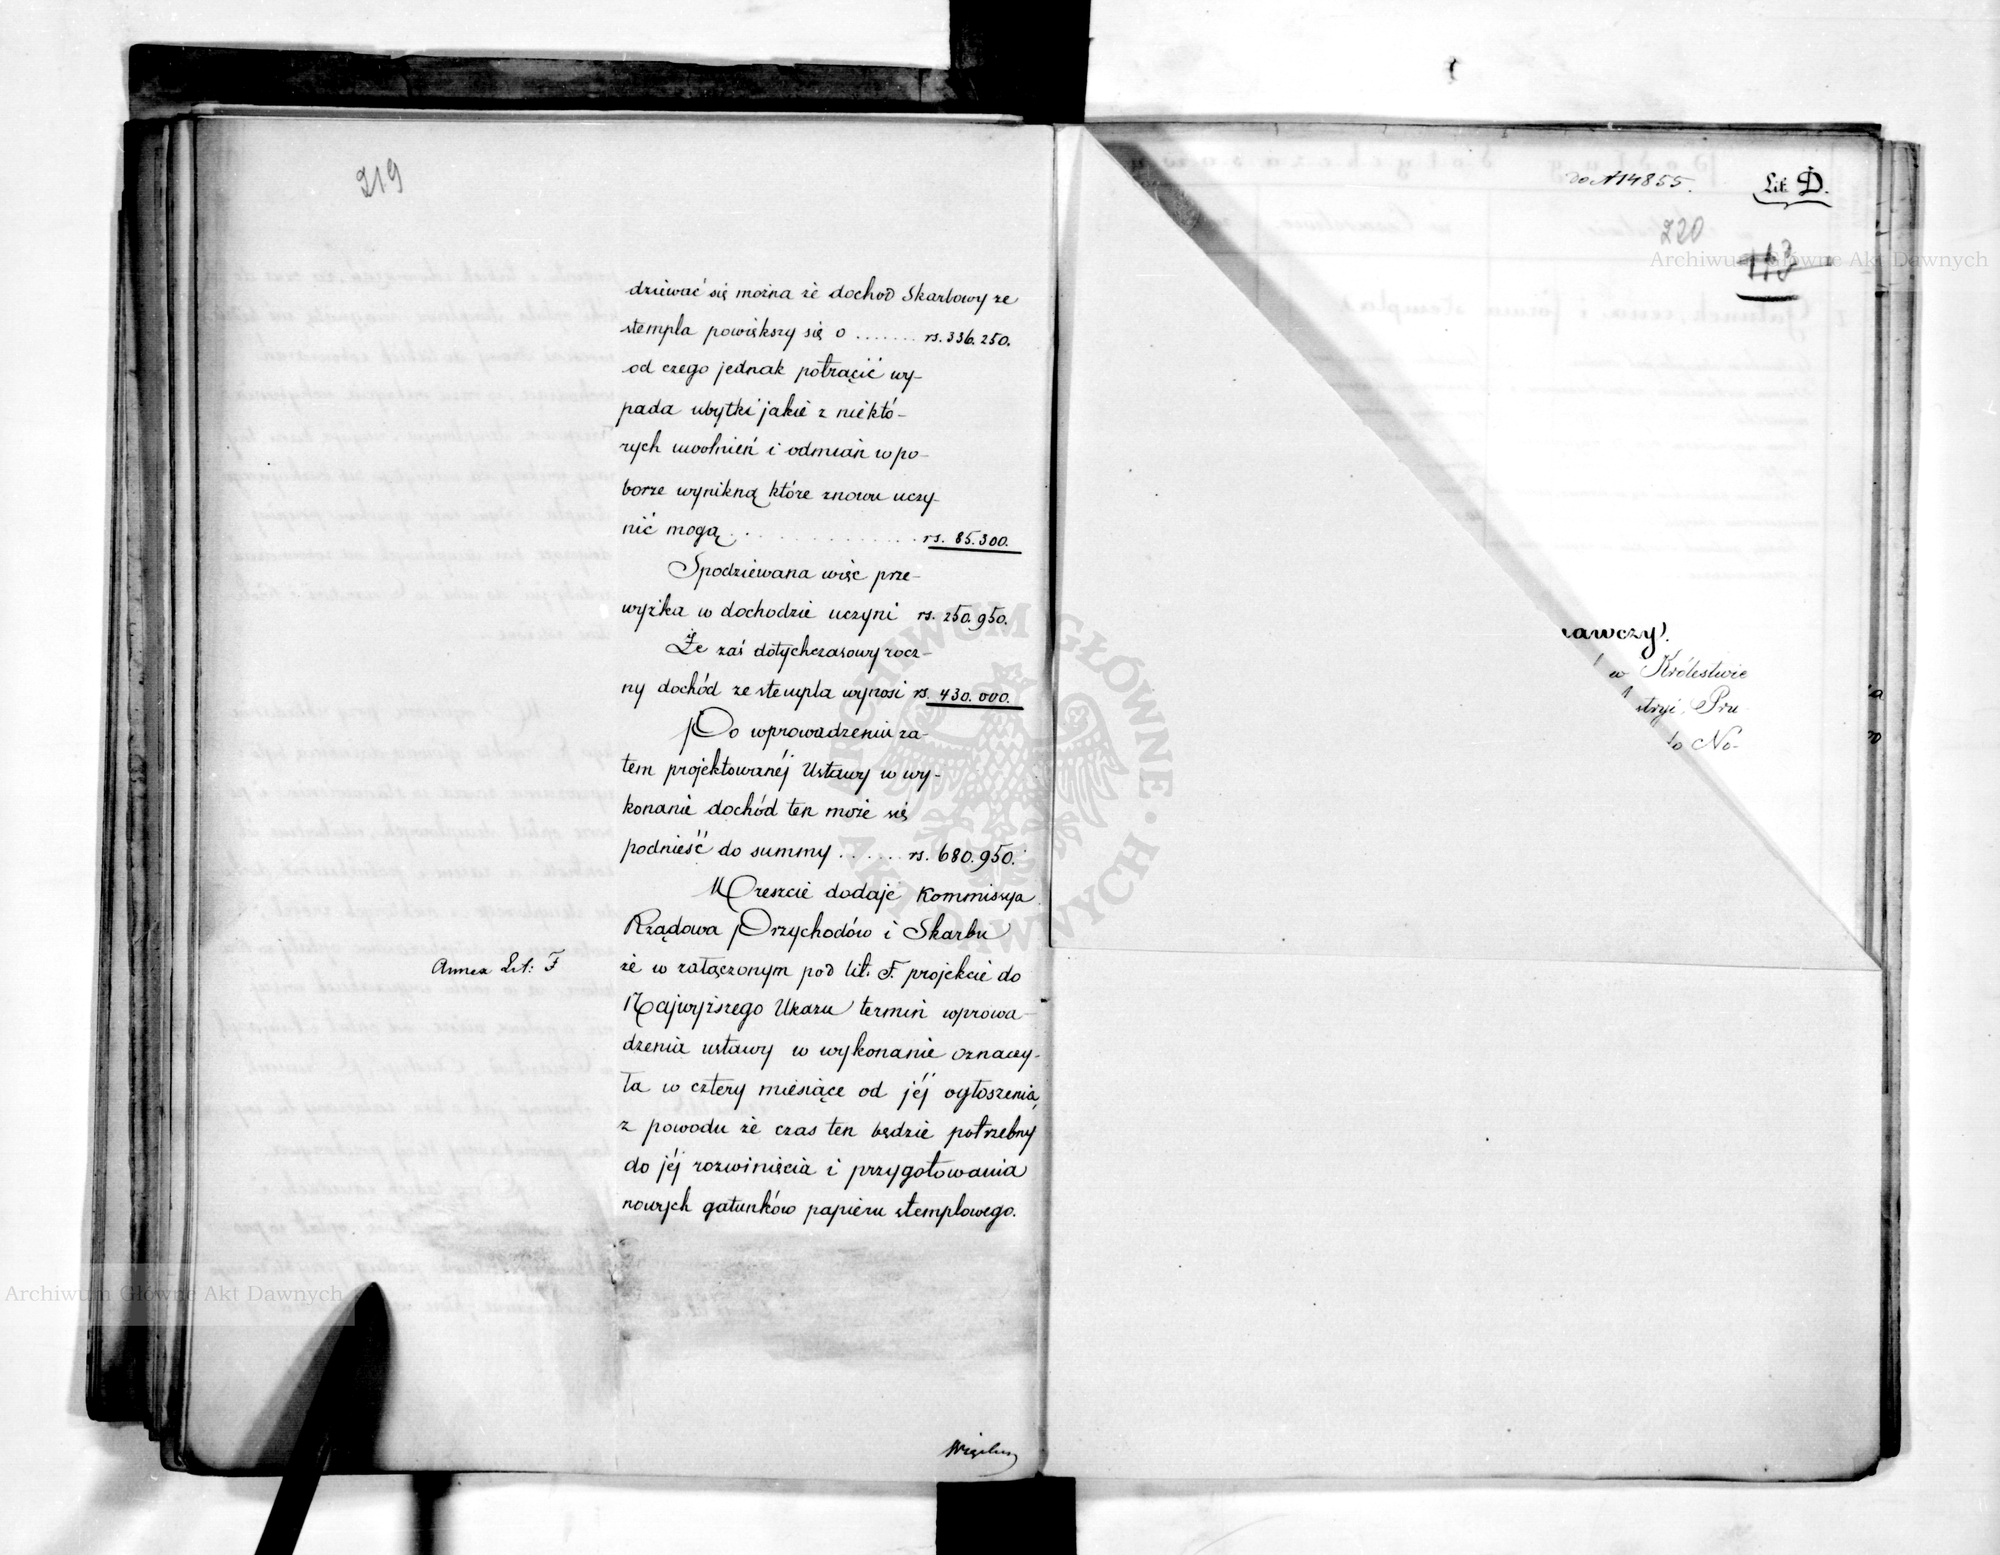 219
dziewać się można że dochod Skarbowy ze
stempla powiększy się o ....... rs. 336.250.
od czego jednak potrącić wy-
pada ubytki jakie z niektó-
rych uwolnień i odmian w po-
borze wynikną które znowu uczy-
nić mogą . . . . . . . . . . . . . rs. 85.300.
Spodziewana więc prze-
wyżka w dochodzie uczyni rs. 250.950.
Że zaś dotychczasowy rocz-
ny dochód ze stempla wynosi rs. 430.000.
Po wprowadzeniu za-
tem projektowanéj Ustawy w wy-
konanie dochód ten może się
podnieść do summy ...... rs. 680.950.
Wreszcie dodaje Kommissya
Rządowa Przychodów i Skarbu
Annex Lit: F
że w załączonym pod lit. F. projekcie do
Najwyższego Ukazu termin wprowa-
dzenia ustawy w wykonanie oznaczy-
ła w cztery miesiące od jéj ogłoszenia,
z powodu że czas ten będzie potrzebny
do jéj rozwinięcia i przygotowania
nowych gatunków papieru stemplowego.
do N 14855.
Lit: D.
220
113
awczy).
w Królestwie
stryi, Pru-
do No-
Archiwum Główne Akt Dawnych
Archiwum Główne Akt Dawnych
ARCHIWUM GŁÓWNE · AKT DAWNYCH ·